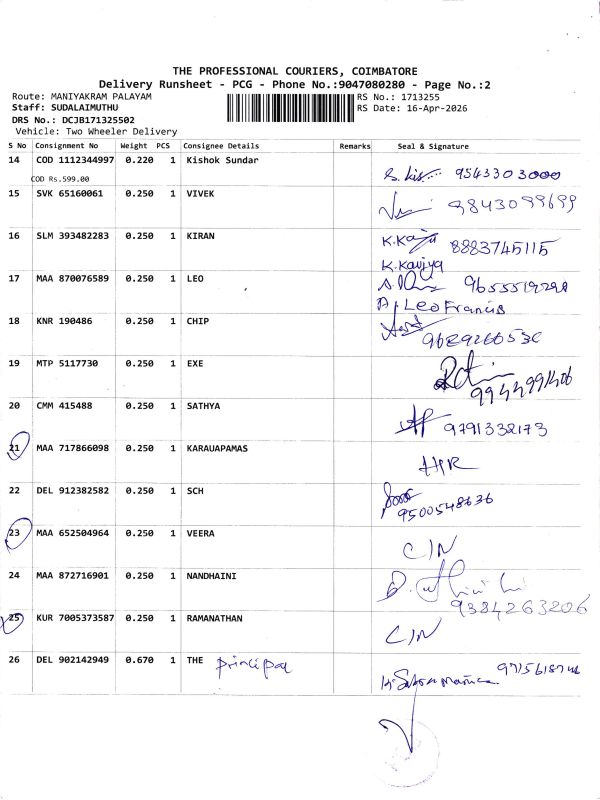 THE PROFESSIONAL COURIERS, COIMBATORE
Delivery Runsheet - PCG - Phone No.:9047080280 - Page No.:2
Route: MANIYAKRAM PALAYAM RS No.: 1713255
Staff: SUDALAIMUTHU RS Date: 16-Apr-2026
DRS No.: DCJB171325502
Vehicle: Two Wheeler Delivery
S No Consignment No Weight PCS Consignee Details Remarks Seal & Signature
14 COD 1112344997 0.220 1 Kishok Sundar 9543303000
COD Rs.599.00
15 SVK 65160061 0.250 1 VIVEK 9843099699
16 SLM 393482283 0.250 1 KIRAN 8883745115
K.Kaviya
17 MAA 870076589 0.250 1 LEO
A. Leo Francis
18 KNR 190486 0.250 1 CHIP
19 MTP 5117730 0.250 1 EXE
20 CMM 415488 0.250 1 SATHYA 9791332173
21 MAA 717866098 0.250 1 KARAUAPAMAS
22 DEL 912382582 0.250 1 SCH
9500548636
23 MAA 652504964 0.250 1 VEERA C/N
24 MAA 872716901 0.250 1 NANDHAINI
9384263206
25 KUR 7005373587 0.250 1 RAMANATHAN C/N
26 DEL 902142949 0.670 1 THE principal